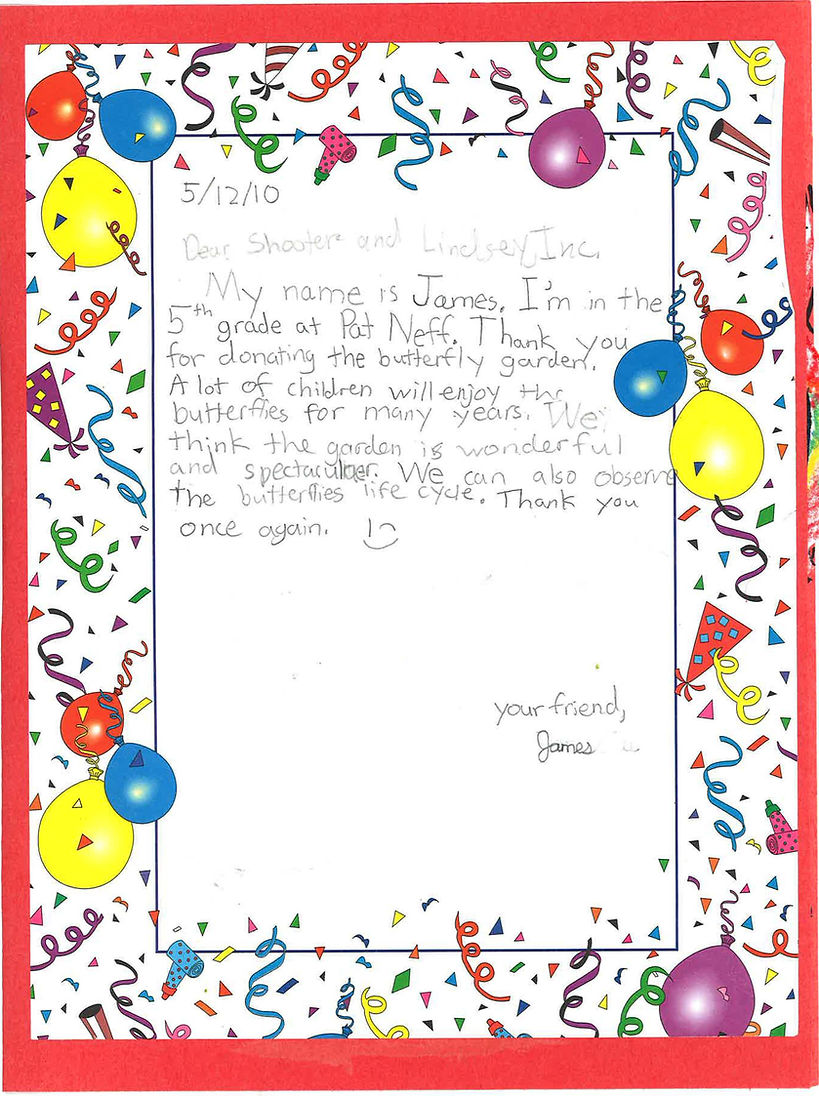 5/12/10
Dear Shooter and Lindsey, Inc.
My name is James. I'm in the
5th grade at Pat Neff. Thank you
for donating the butterfly garden.
A lot of children will enjoy the
butterflies for many years. We
think the garden is wonderful
and spectaculaer. We can also observe
the butterflies life cycle. Thank you
once again.
your friend,
James